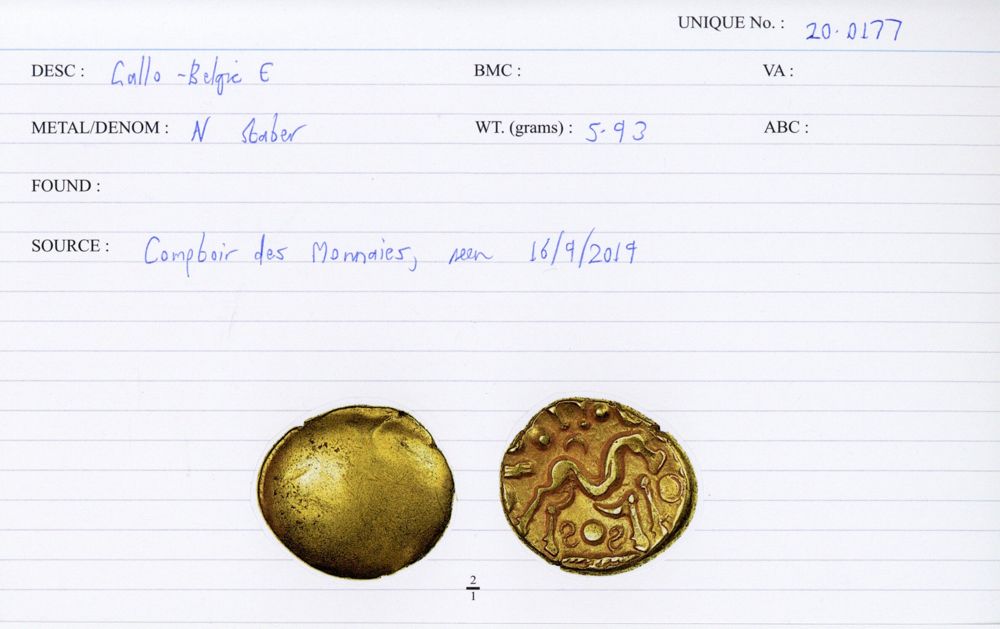 UNIQUE No. : 20.0177
DESC : Gallo-Belgic E BMC : VA :
METAL/DENOM : N Stater WT. (grams) : 5.93 ABC :
FOUND :
SOURCE : Comptoir des Monnaies, seen 16/9/2019
2
1